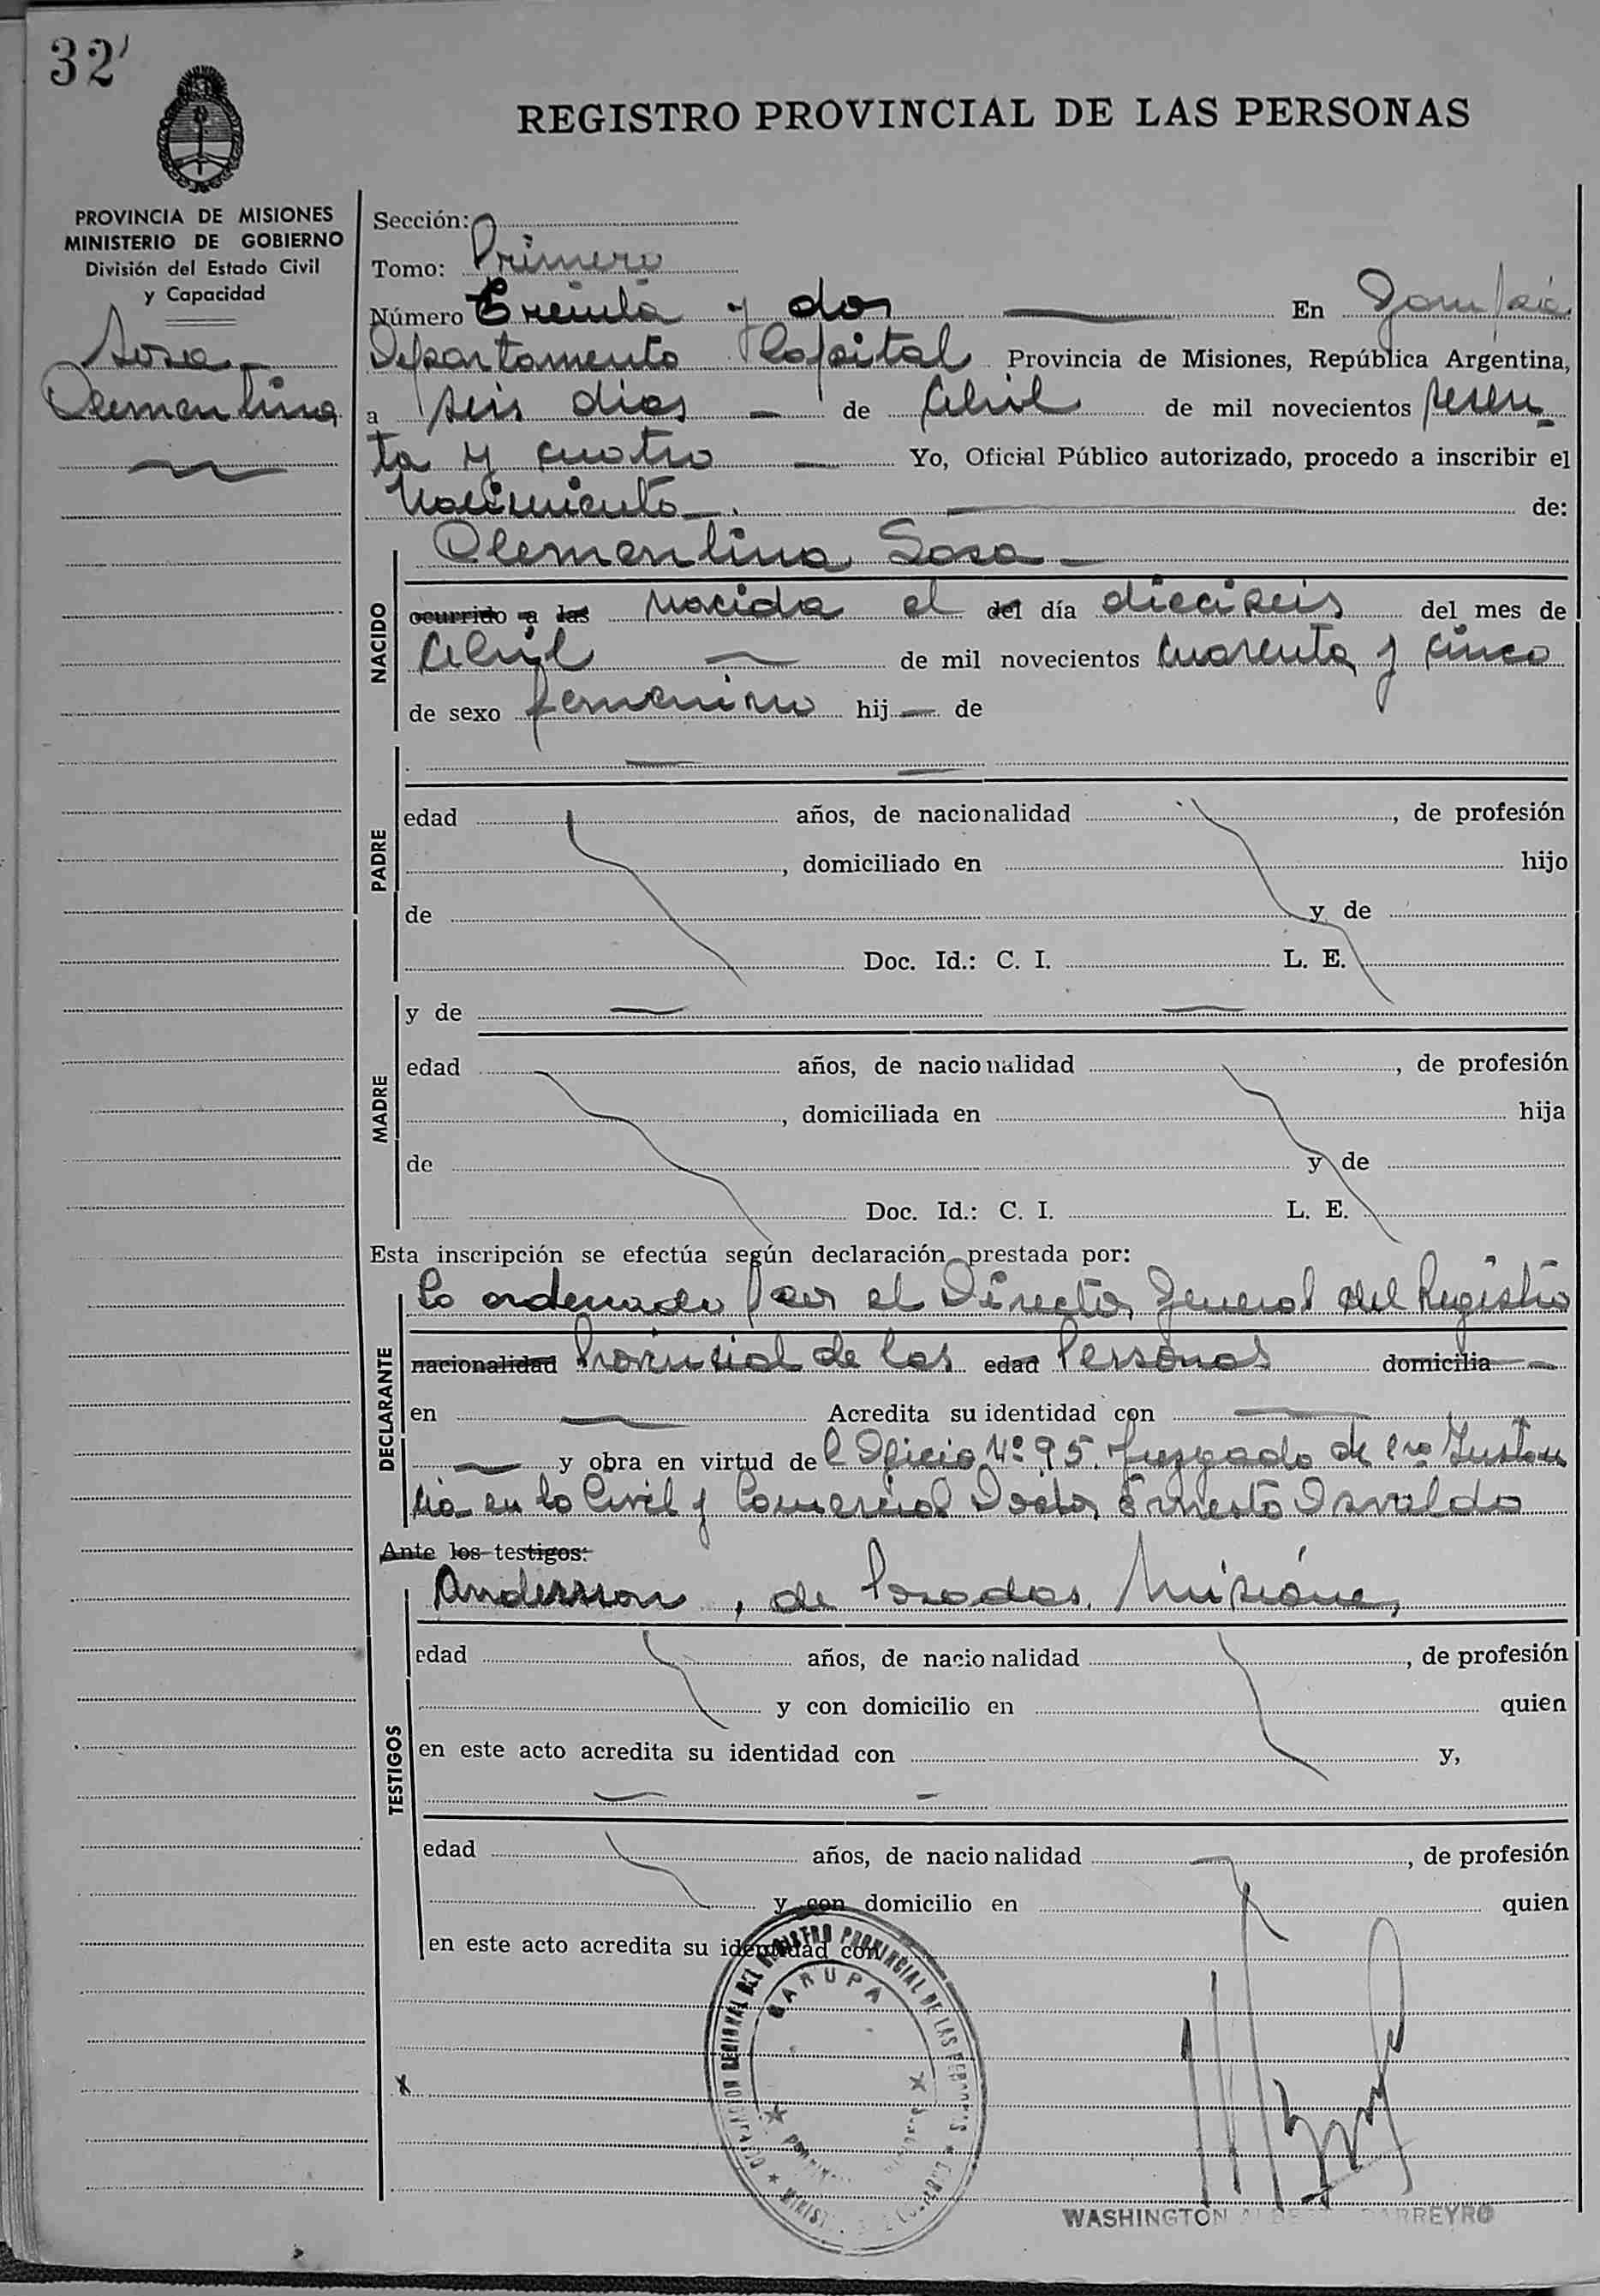 32
REGISTRO PROVINCIAL DE LAS PERSONAS
PROVINCIA DE MISIONES
MINISTERIO DE GOBIERNO
División del Estado Civil
y Capacidad
Sosa
Clementina
Sección:
Tomo: Primero
Número Treinta y dos En Garupá
Departamento Capital Provincia de Misiones, República Argentina,
a seis dias de Abril de mil novecientos sesen
ta y cuatro Yo, Oficial Público autorizado, procedo a inscribir el
Nacimiento de:
Clementina Sosa
NACIDO
ocurrido a las nacida el del día dieciseis del mes de
Abril de mil novecientos cuarenta y cinco
de sexo femenino hij de
PADRE
edad años, de nacionalidad , de profesión
, domiciliado en hijo
de y de
Doc. Id.: C. I. L. E.
y de
MADRE
edad años, de nacionalidad , de profesión
, domiciliada en hija
de y de
Doc. Id.: C. I. L. E.
Esta inscripción se efectúa según declaración prestada por:
lo ordenado por el Director General del Registro
DECLARANTE
nacionalidad Provincial de las edad Personas domicilia
en Acredita su identidad con
y obra en virtud de l Oficio Nº 95. Juzgado de 1ra Instan
cia en lo Civil y Comercial Doctor Ernesto Osvaldo
Ante los testigos:
Andersson, de Posadas, Misiones,
TESTIGOS
edad años, de nacionalidad , de profesión
y con domicilio en quien
en este acto acredita su identidad con y,
edad años, de nacionalidad , de profesión
y con domicilio en quien
en este acto acredita su identidad con
DELEGACION REGIONAL DEL REGISTRO PROVINCIAL DE LAS PERSONAS
GARUPA
x
WASHINGTON BARREYRO